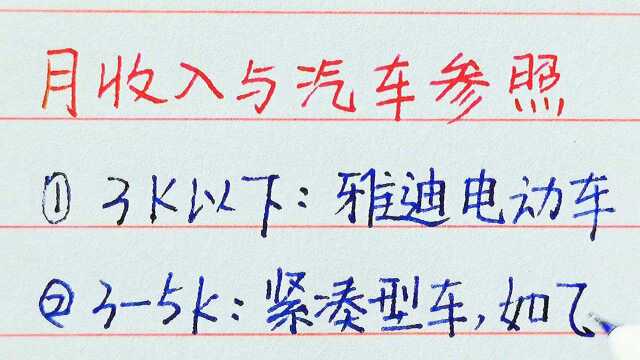 月收入与汽车参照
① 3K以下:雅迪电动车
② 3-5K:紧凑型车,如